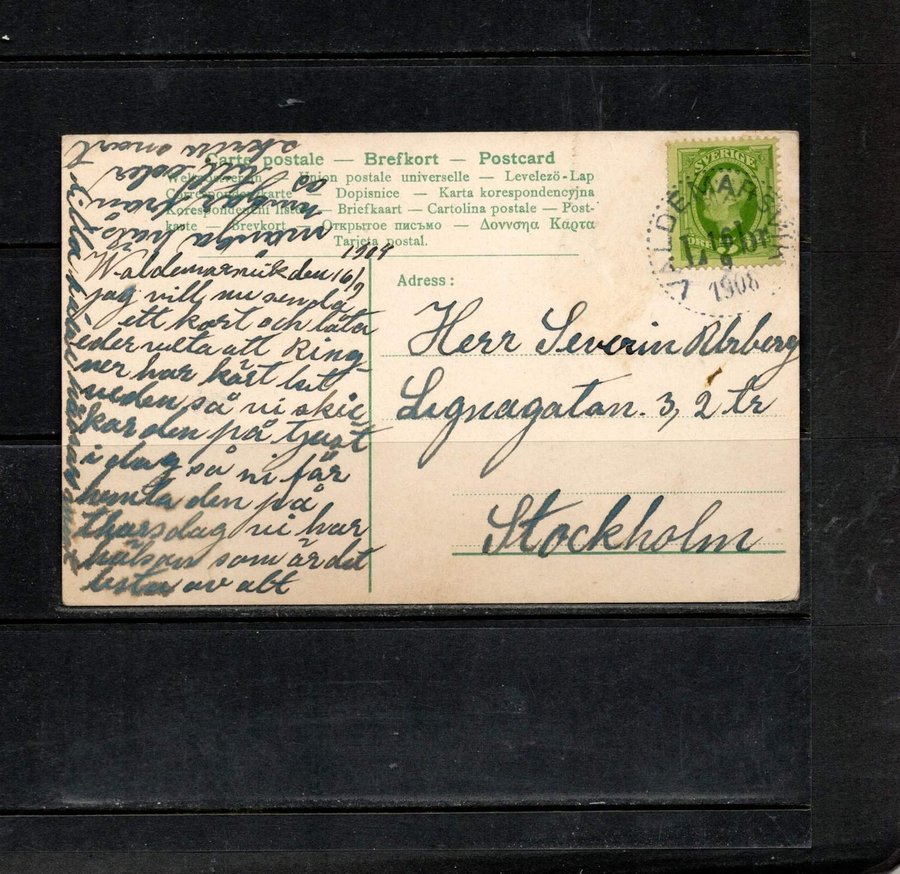 Carte postale — Brefkort — Postcard
Weltpostverein — Union postale universelle — Levelezö-Lap
Correspondenzkarte — Dopisnice — Karta korespondencyjna
Korespondenční lístek — Briefkaart — Cartolina postale — Post-
karte — Brevkort — Открытое письмо — Δουνσηα Καρτα
Tarjeta postal.
SVERIGE
VALDEMARSVIK
1908
1908
den 16/9
jag vill nu sända
ett kort och låta
eder veta att Ring-
ner har kärt
veden så vi skic
kar den på tjust
i dag så ni får
hemta den på
thorsdag vi har
hälsan som är det
bästa av alt
många häls
ningar från
os
skriv snart
Adress:
Herr Severin
Lignagatan. 3, 2 tr
Stockholm